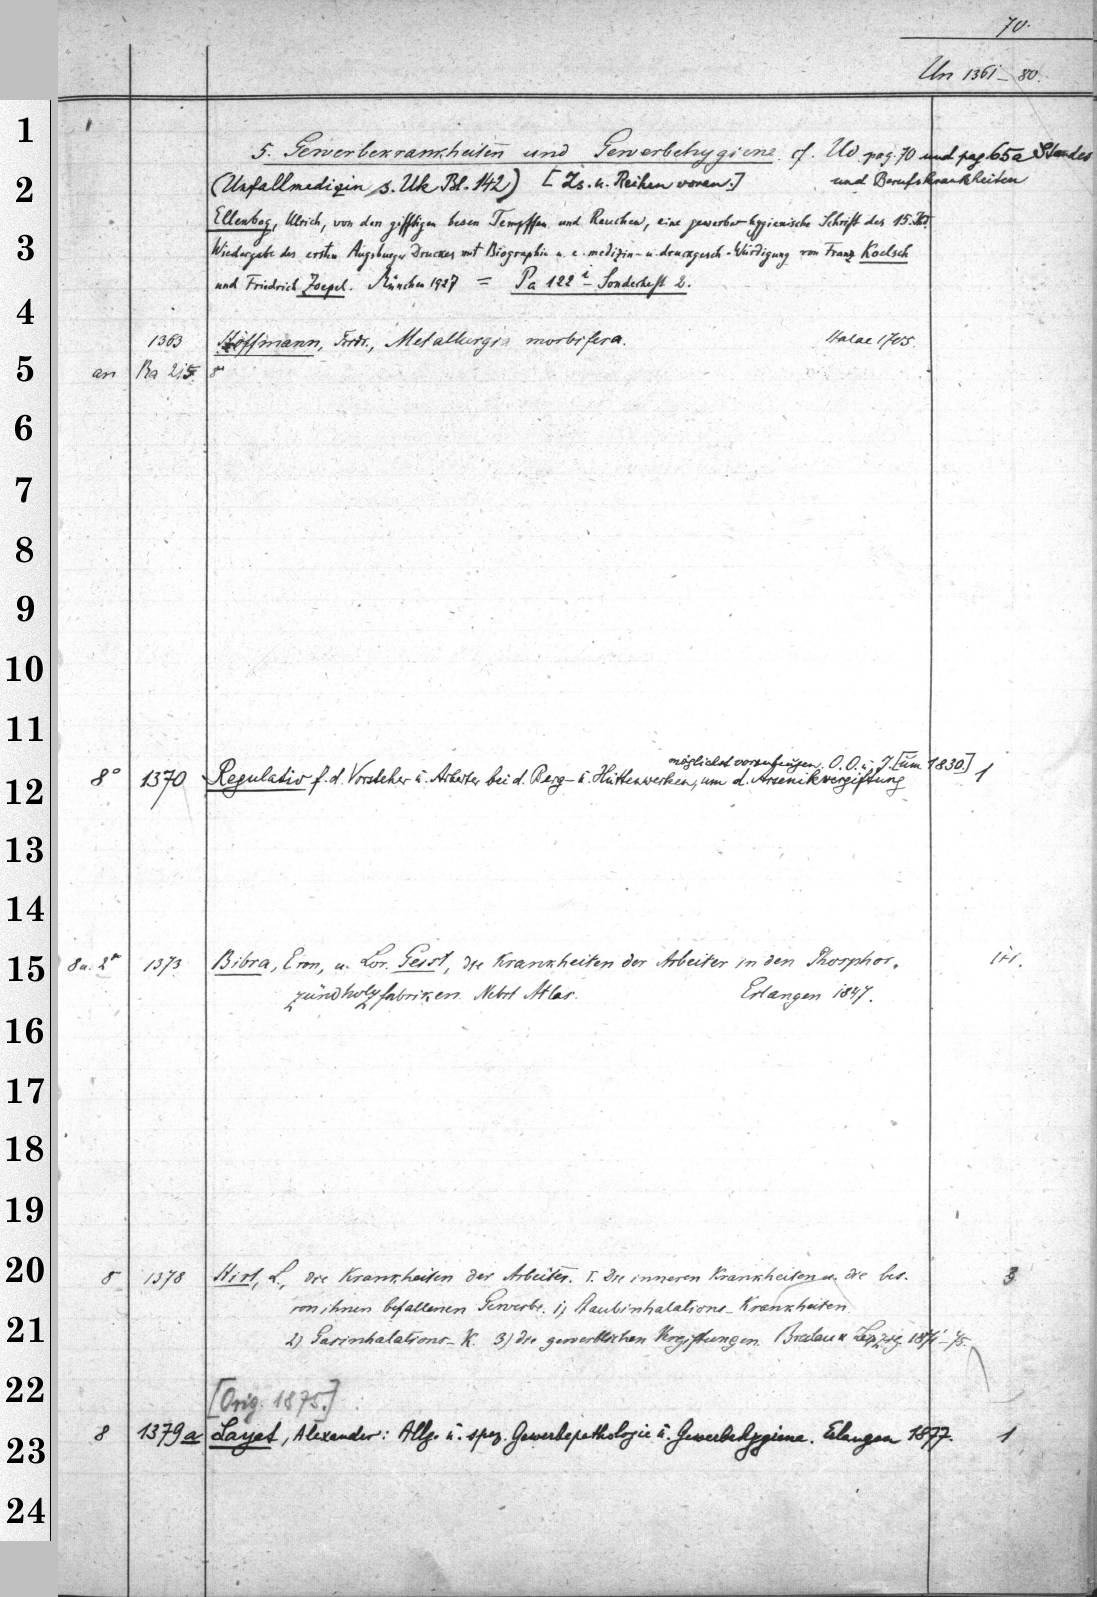 70.
Un 1361 - 80.
1
5. Gewerbekrankheiten und Gewerbehygiene. cf. Ud pag. 70 und pag 65a Standes
2
(Unfallmedizin s. Uk Bl. 142) [Zs. u. Reihen voran.] und Berufskrankheiten
Ellenbog, Ulrich, von den gifftigen besen Tempffen und Reuchen, eine gewerbe-hygienische Schrift des 15. Jht.
3
Wiedergabe des ersten Augsburger Druckes mit Biographie u. e. medizin- u. druckgesch. Würdigung von Franz Koelsch
und Friedrich Zoepel. München 1927 = Pa 122 i - Sonderheft 2.
4
1363 Hoffmann, Frdr., Metallurgia morbifera. Halae 1705.
5
an Ba 215 8°
6
7
8
9
10
11
möglichst vorzubeugen. O. O. u. J. [um 1830]
12
8° 1370 Regulativ f. d. Vorsteher u. Arbeiter bei d. Berg- u. Hüttenwerken, um d. Arsenikvergiftung 1
13
14
15
8 u. 2° 1373 Bibra, Ern, u. Lor. Geist, die Krankheiten der Arbeiter in den Phosphor- 1+1.
zündholzfabriken. Nebst Atlas. Erlangen 1847.
16
17
18
19
20
8 1378 Hirt, L., die Krankheiten der Arbeiter. I. Die inneren Krankheiten u. die bes. 3
von ihnen befallenen Gewerbe. 1) Staubinhalations-Krankheiten.
21
2) Gasinhalations-K. 3) die gewerblichen Vergiftungen. Breslau u. Leipzig 1871-75.
22
[Orig. 1875.]
23
8 1379a Layet, Alexander: Allg. u. spez. Gewerbepathologie u. Gewerbehygiene. Erlangen 1877. 1
24